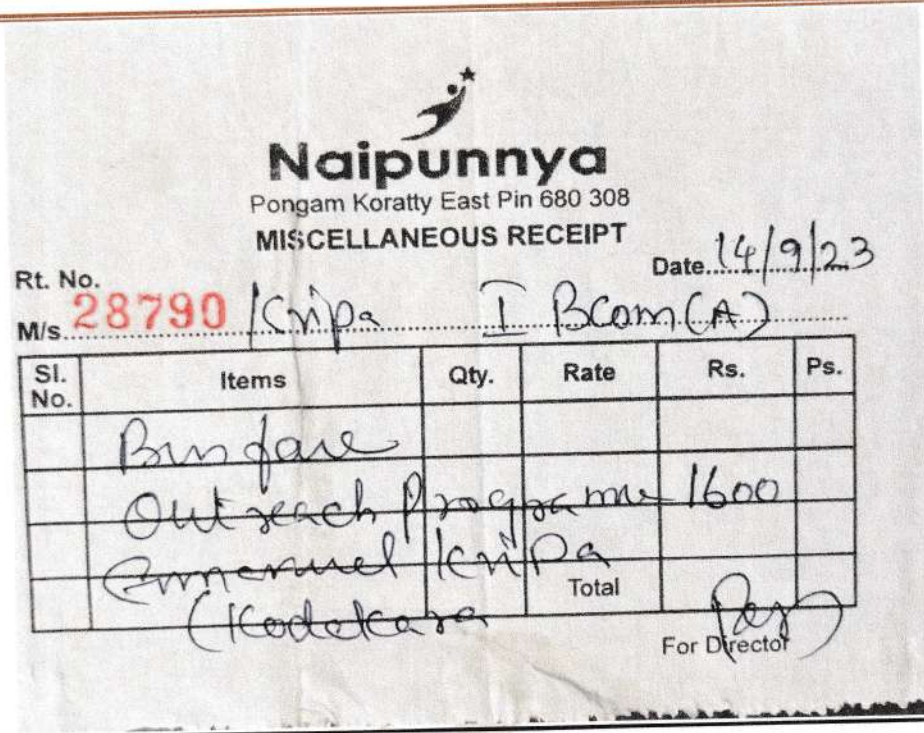 Naipunnya
Pongam Koratty East Pin 680 308
MISCELLANEOUS RECEIPT
Date 14/9/23
Rt. No.
M/s. 28790 Kripa I BCom (A)
Sl. No. Items Qty. Rate Rs. Ps.
Bus fare
Outreach Programme 1600
Emmanuel Kripa
Total
(Kodakara
For Director